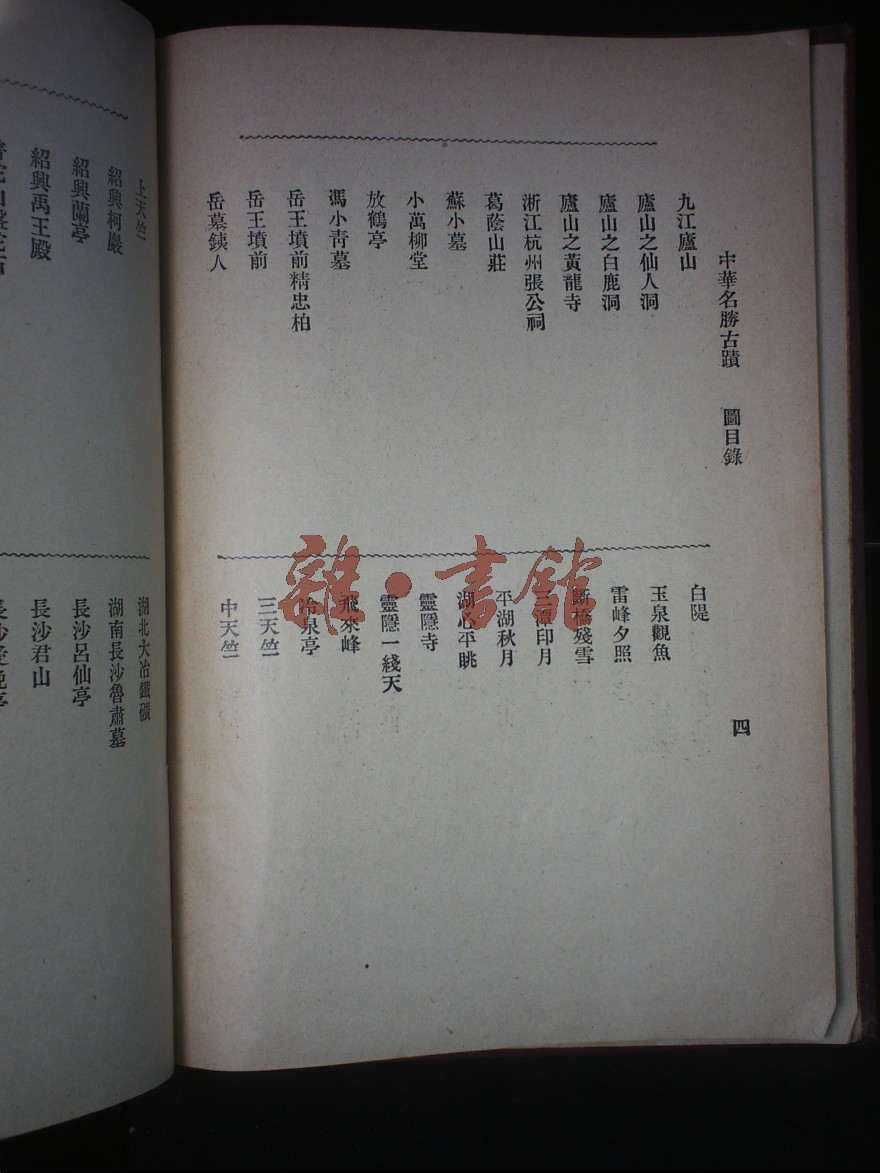 中華名勝古蹟　圖目錄
四
九江廬山
廬山之仙人洞
廬山之白鹿洞
廬山之黃龍寺
浙江杭州張公祠
葛蔭山莊
蘇小墓
小萬柳堂
放鶴亭
馮小青墓
岳王墳前精忠柏
岳王墳前
岳墓銕人
白隄
玉泉觀魚
雷峰夕照
斷橋殘雪
三潭印月
平湖秋月
湖心平眺
靈隱寺
靈隱一綫天
飛來峰
冷泉亭
三天竺
中天竺
上天竺
紹興柯巖
紹興蘭亭
紹興禹王殿
湖北大冶鐵礦
湖南長沙魯肅墓
長沙呂仙亭
長沙君山
雜·書館